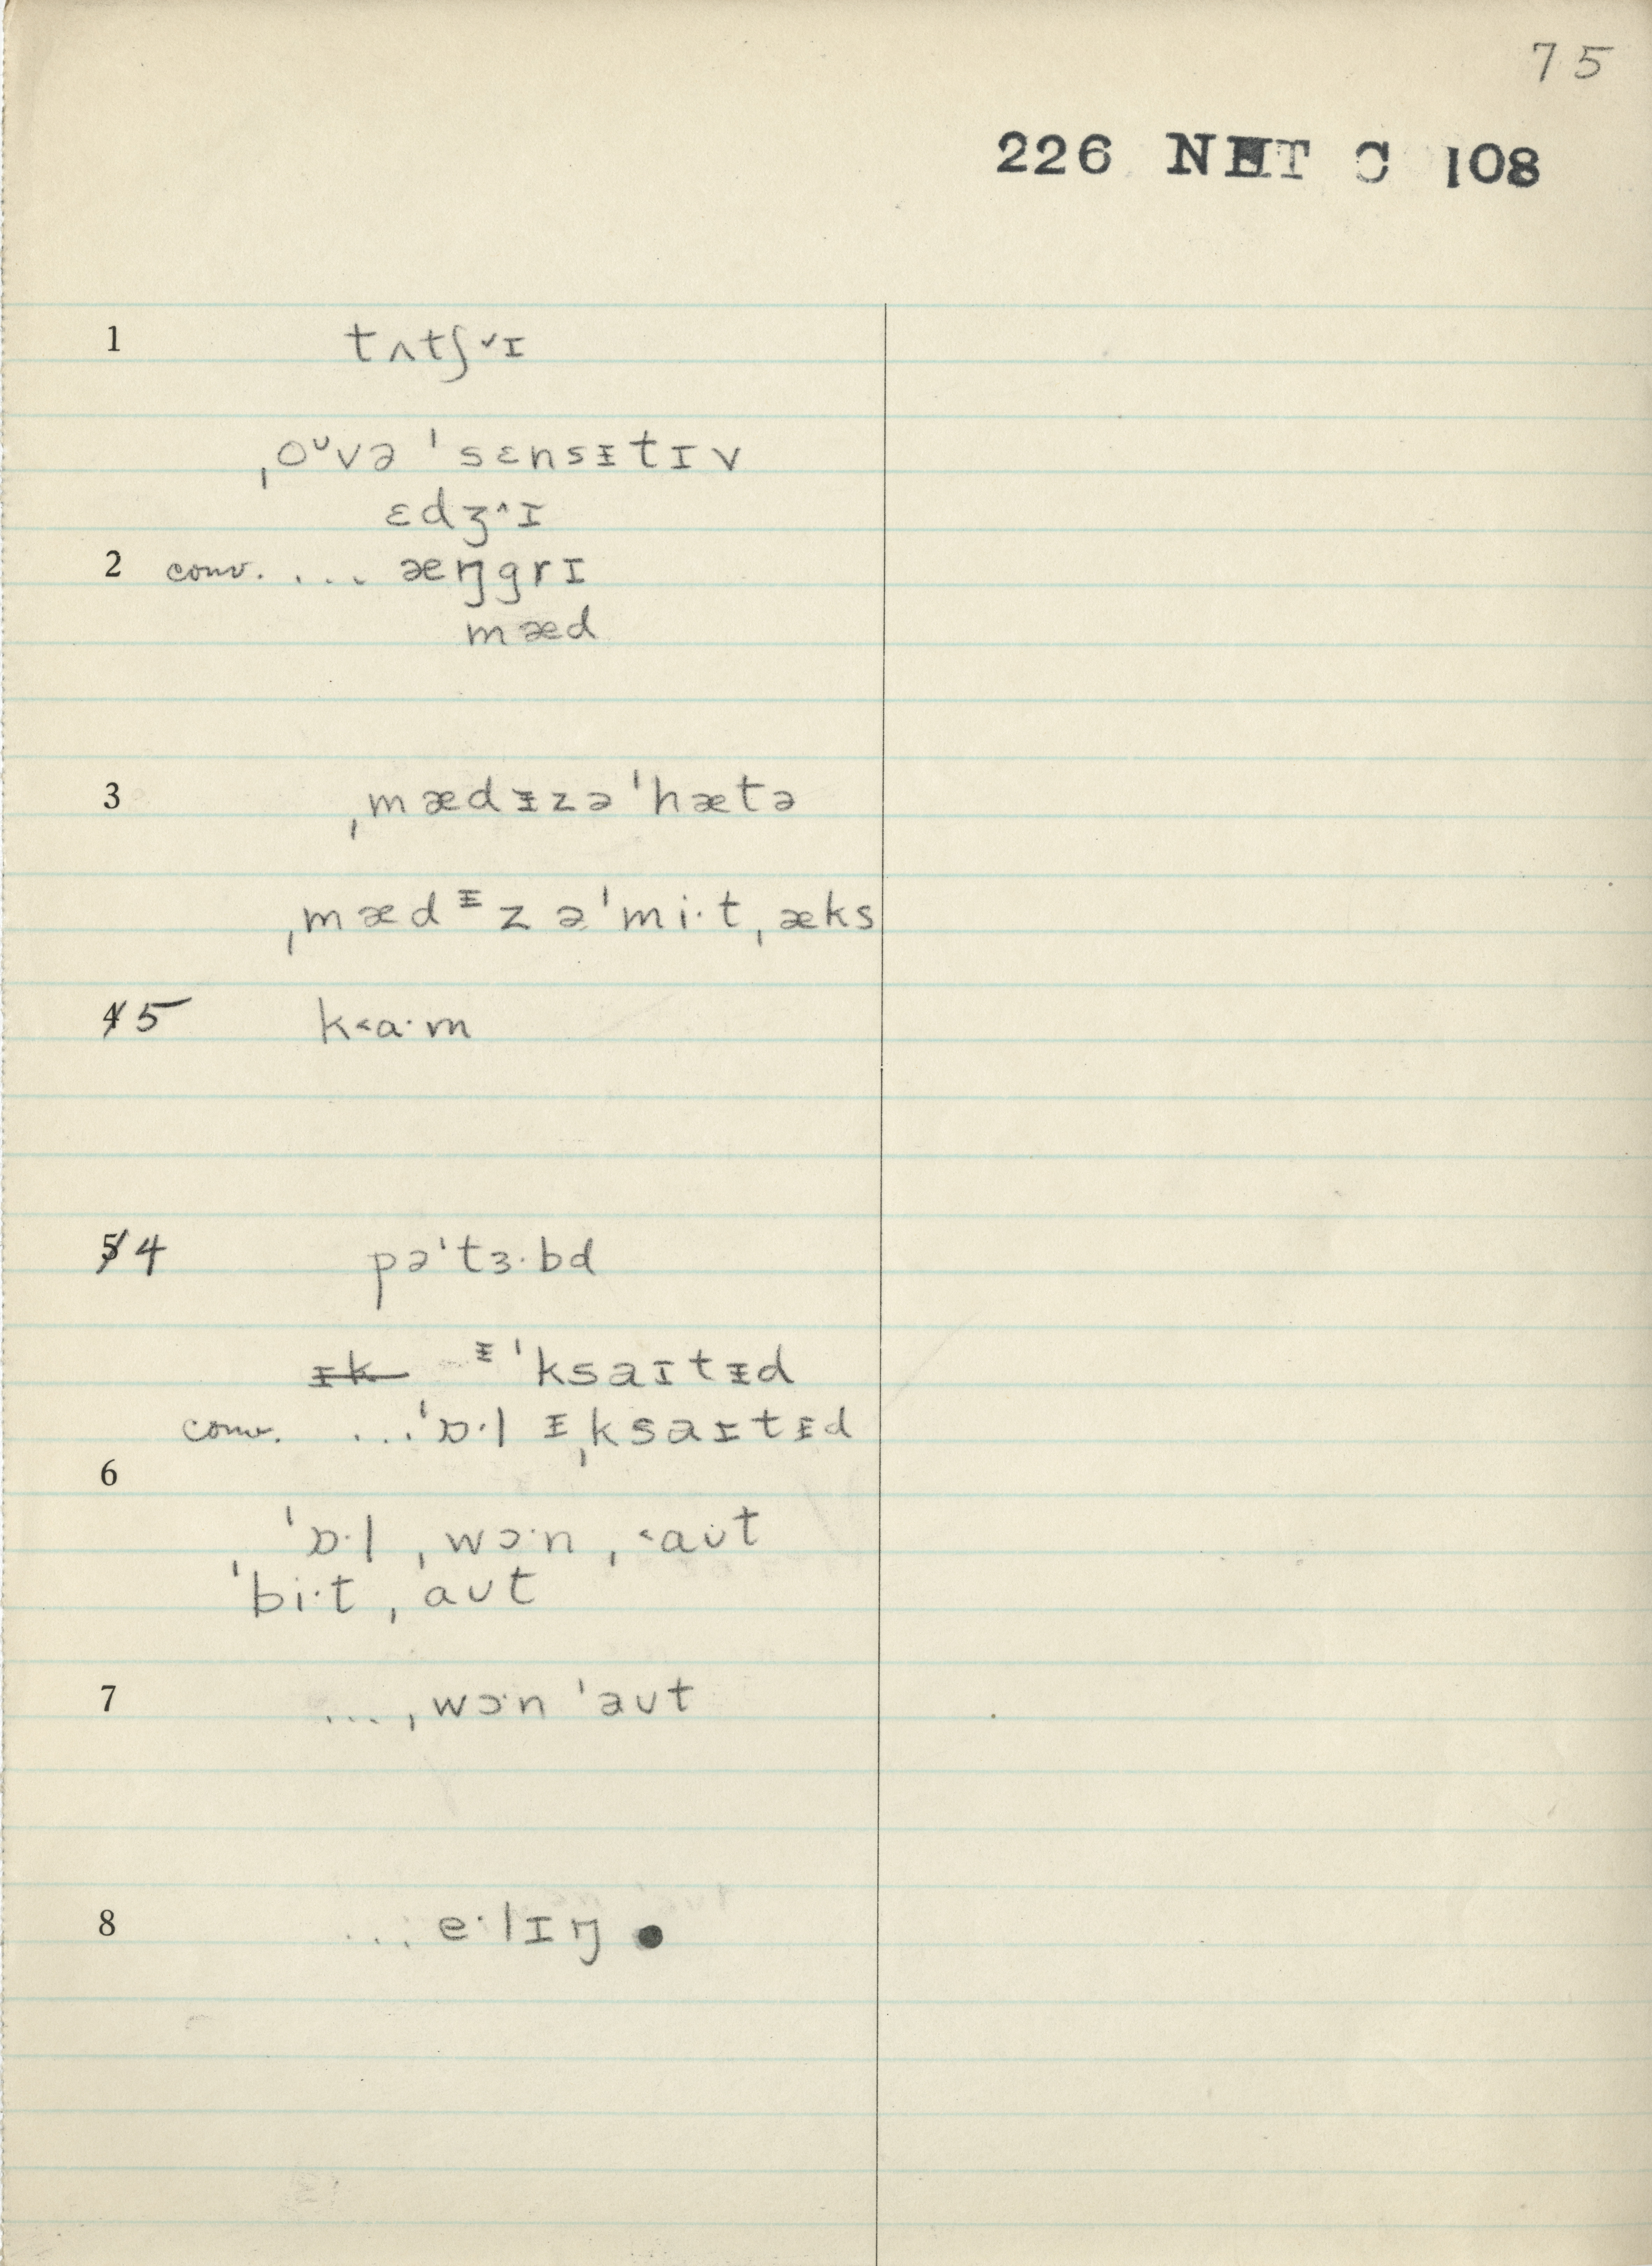 75
226 NHT C 108
1 tʌtʃ˅ɪ
ˌoᶷvə ˈsɛnsᵻtɪv
ɛdʒ˄ɪ
2 conv. ... æŋgrɪ
mæd
3 ˌmædᵻzəˈhætə
ˌmædᵻz əˈmi·tˌæks
4 5 k˂a·m
5 4 pəˈtɜ·bd
ᵻk ᵻˈksaɪtᵻd
conv. ...ˈɒ·l ᵻˌksaɪtᵻd
6
ˈɒ·l ˌwɔ·n ˌ˂aʊt
ˈbi·tˌaʊt
7 ...ˌwɔ·n ˈəʊt
8 ... e·lɪŋ ●